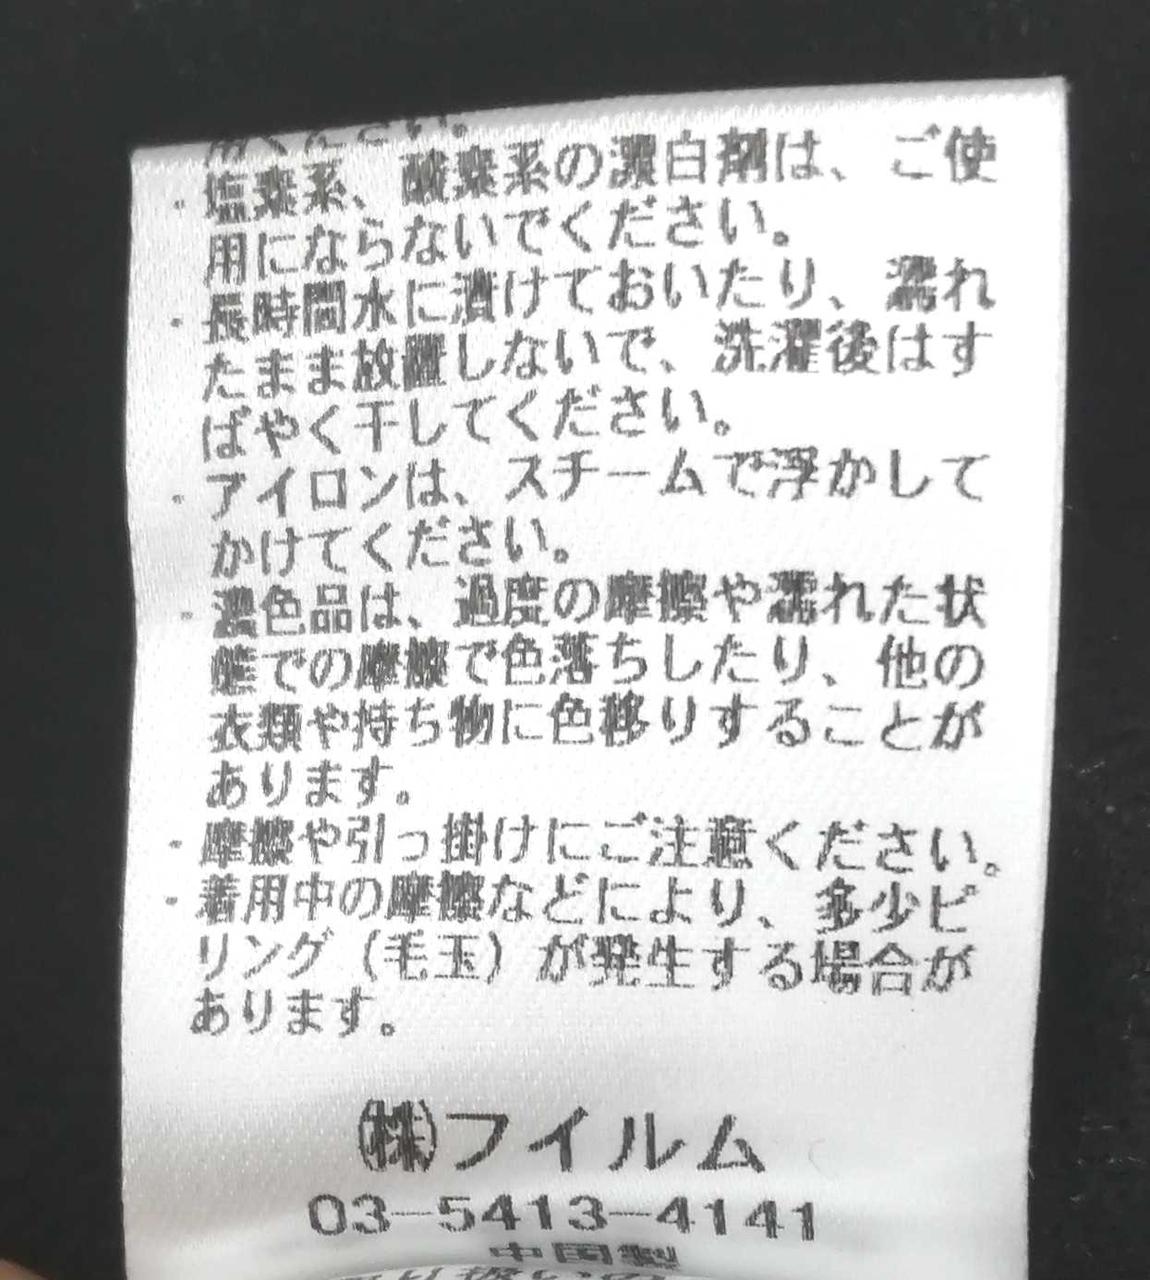 用ください。
・塩素系、酸素系の漂白剤は、ご使
用にならないでください。
・長時間水に漬けておいたり、濡れ
たまま放置しないで、洗濯後はす
ばやく干してください。
・アイロンは、スチームで浮かして
かけてください。
・濃色品は、過度の摩擦や濡れた状
態での摩擦で色落ちしたり、他の
衣類や持ち物に色移りすることが
あります。
・摩擦や引っ掛けにご注意ください。
・着用中の摩擦などにより、多少ピ
リング（毛玉）が発生する場合が
あります。
㈱フイルム
03-5413-4141
中国製